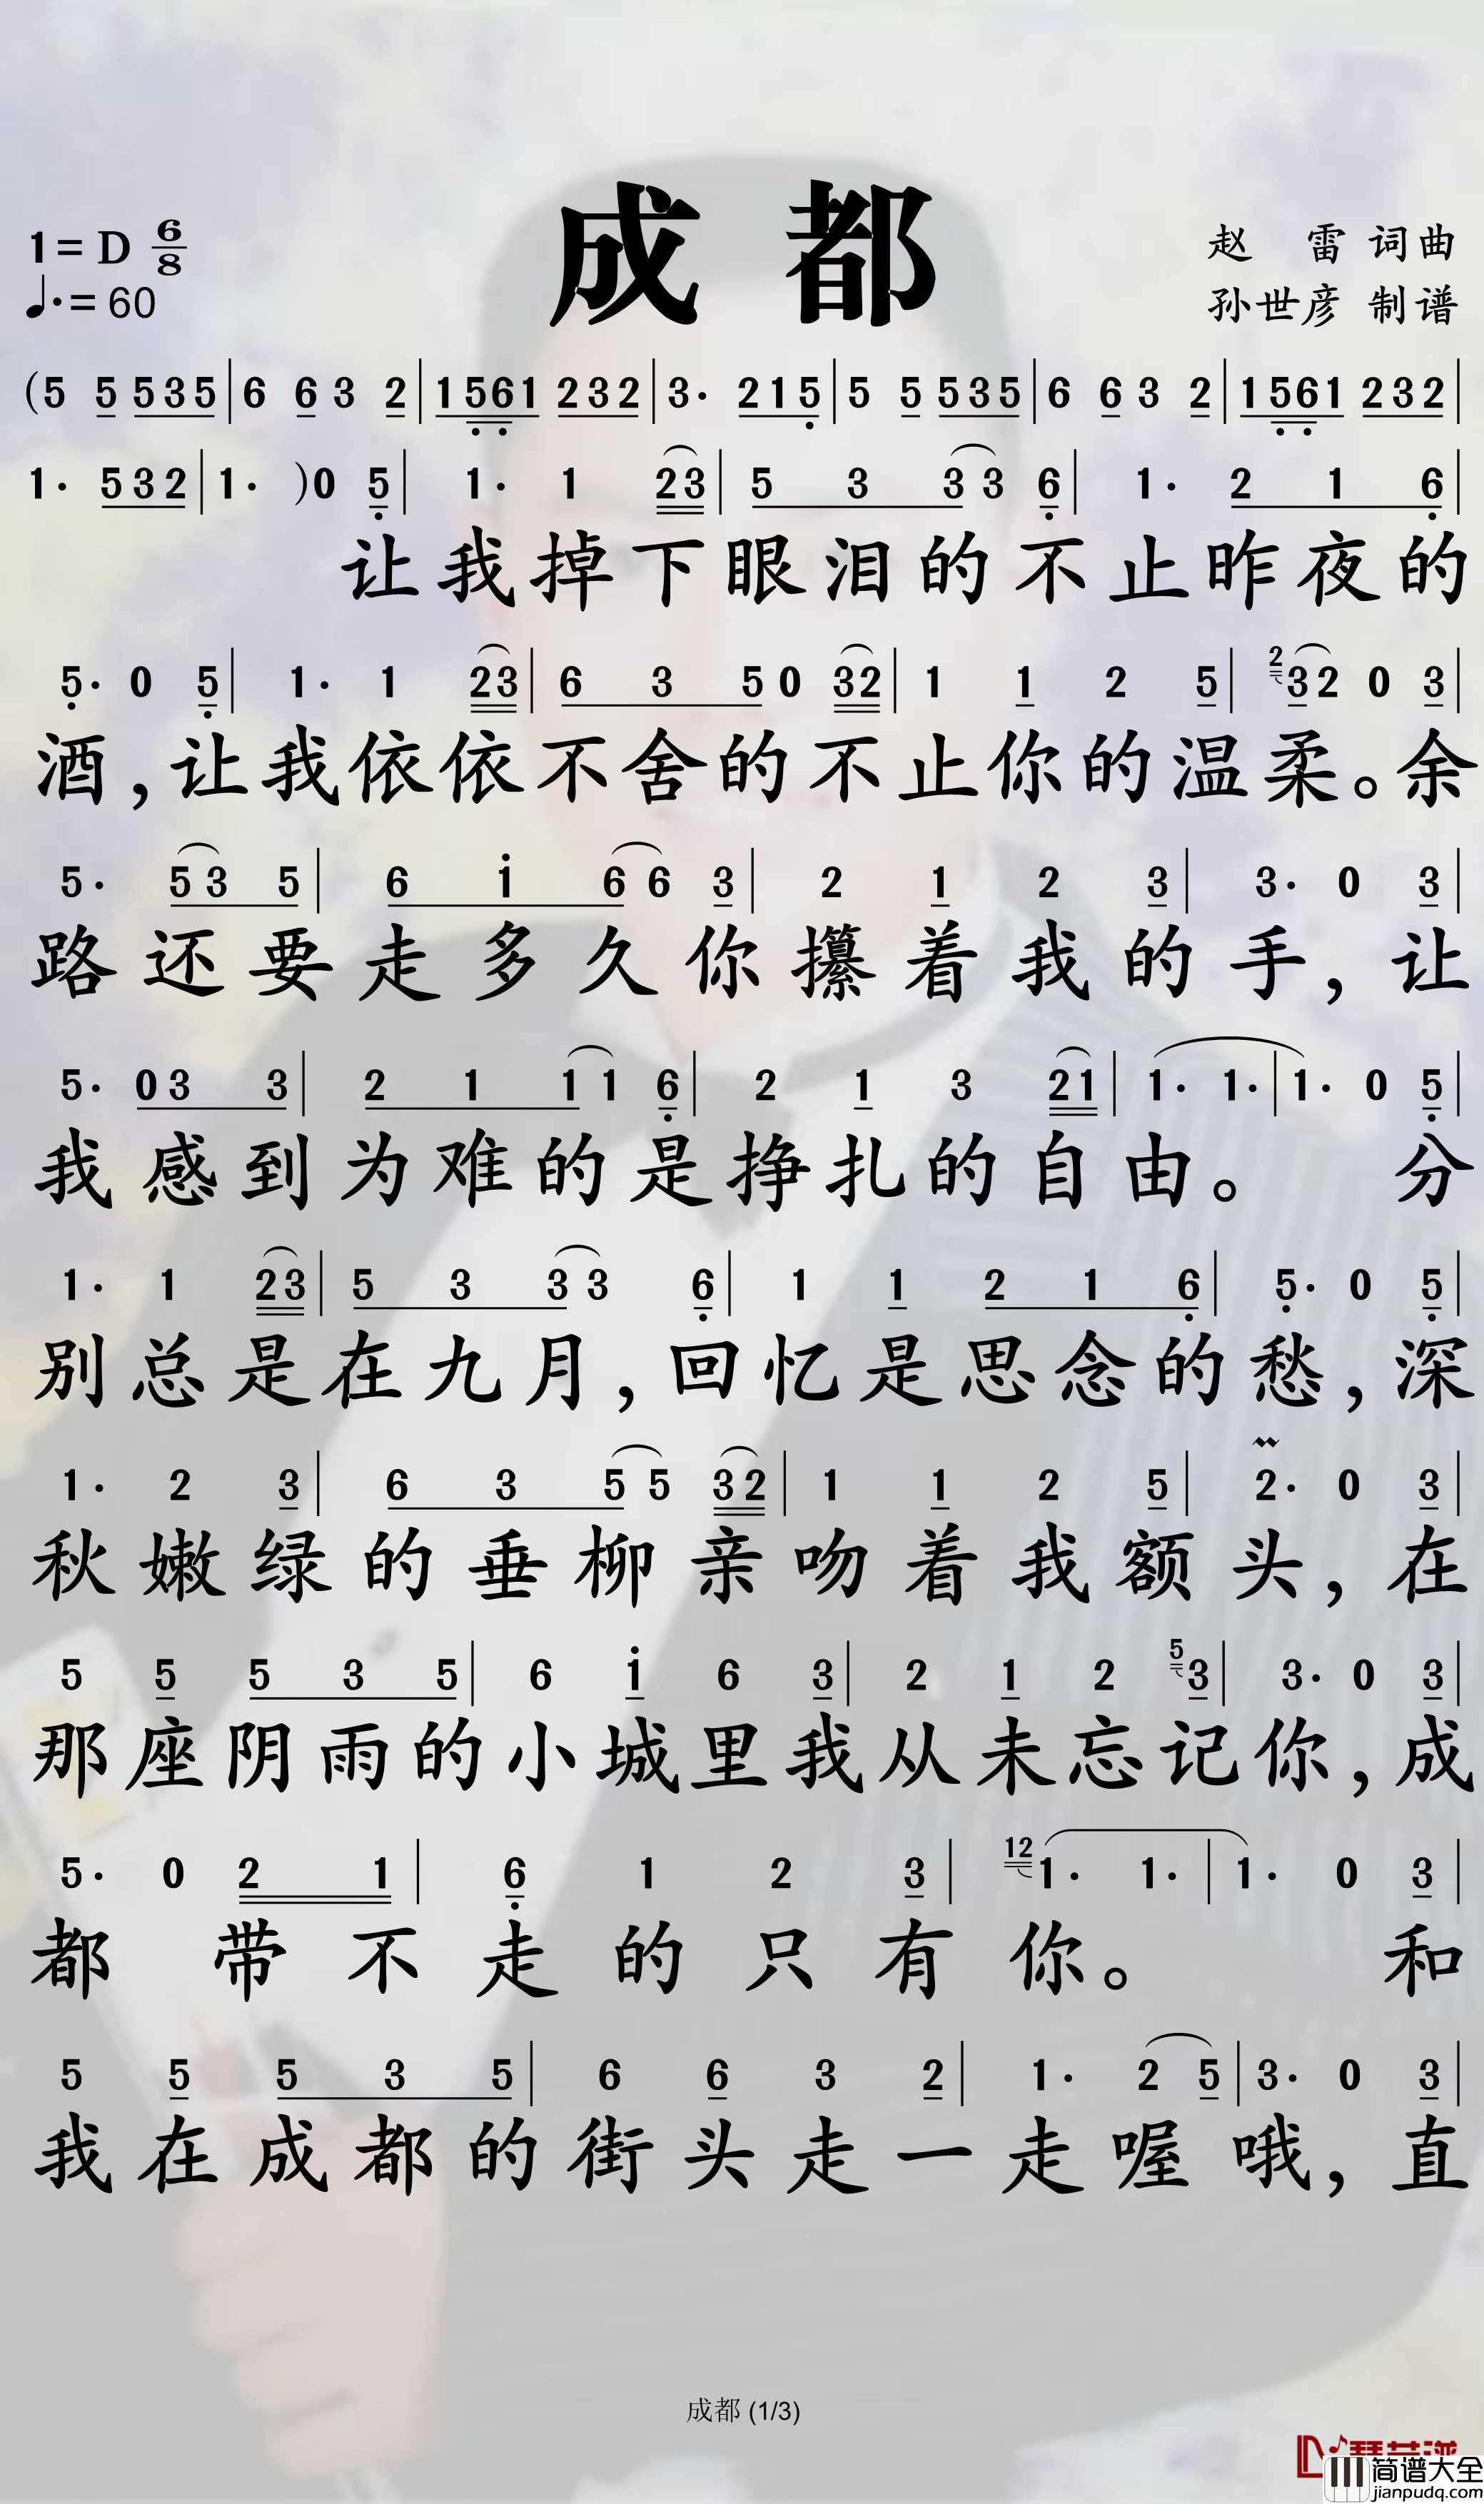 成都
1=D 6/8
♩.=60
赵 雷 词曲
孙世彦 制谱
(5 5 535|6 6 3 2|1561 232|3· 215|5 5 535|6 6 3 2|1561 232|
1· 532|1· )0 5|1· 1 23|5 3 3 3 6|1· 2 1 6|
让我掉下眼泪的不止昨夜的
5· 0 5|1· 1 23|6 3 5 0 32|1 1 2 5|2 3 2 0 3|
酒,让我依依不舍的不止你的温柔。余
5· 5 3 5|6 1 6 6 3|2 1 2 3|3· 0 3|
路还要走多久你攥着我的手,让
5· 0 3 3|2 1 1 1 6|2 1 3 21|1· 1·|1· 0 5|
我感到为难的是挣扎的自由。 分
1· 1 23|5 3 3 3 6|1 1 2 1 6|5· 0 5|
别总是在九月,回忆是思念的愁,深
1· 2 3|6 3 5 5 32|1 1 2 5|2· 0 3|
秋嫩绿的垂柳亲吻着我额头,在
5 5 5 3 5|6 1 6 3|2 1 2 5 3|3· 0 3|
那座阴雨的小城里我从未忘记你,成
5· 0 2 1|6 1 2 3|12 1· 1·|1· 0 3|
都 带不走的只有你。 和
5 5 5 3 5|6 6 3 2|1· 2 5|3· 0 3|
我在成都的街头走一走喔哦,直
成都 (1/3)
简谱大全
jianpudq.com